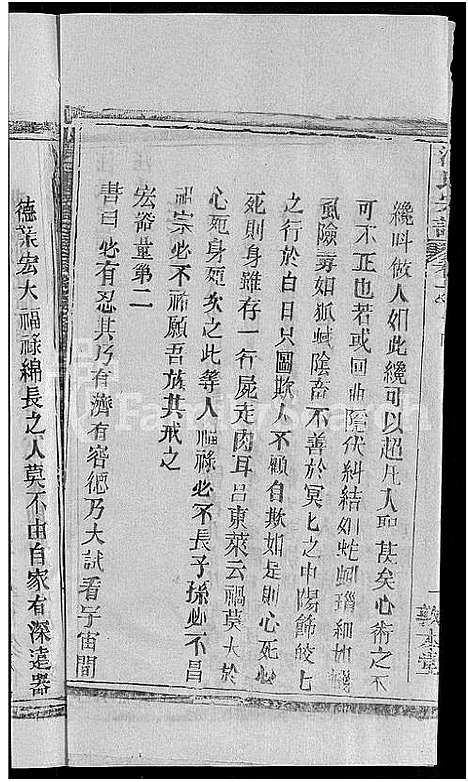 汪氏宗譜
敦本堂
纔呌做人如此纔可以超凡入聖甚矣心術之不
可不正也若或回曲隱伏糾結如蛇蚓瑣細如蟣
虱險毒如狐蜮陰畜不善於冥匕之中陽飾皎匕
之行於白日只圖欺人不顧自欺如是則心死心
死則身雖存一行屍走肉耳呂東萊云禍莫大於
心死身死次之此等人福祿必不長子孫必不昌
祖宗必不祐願吾族其戒之
宏器量第二
書曰必有忍其乃有濟有容德乃大試看宇宙間
德業宏大福祿綿長之人莫不由自家有深遠器
FamilySearch